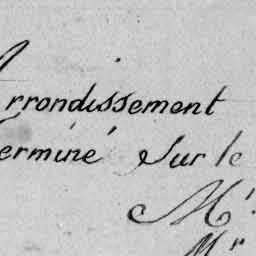 rrondissement
erminé Sur le
Mr.
Mr